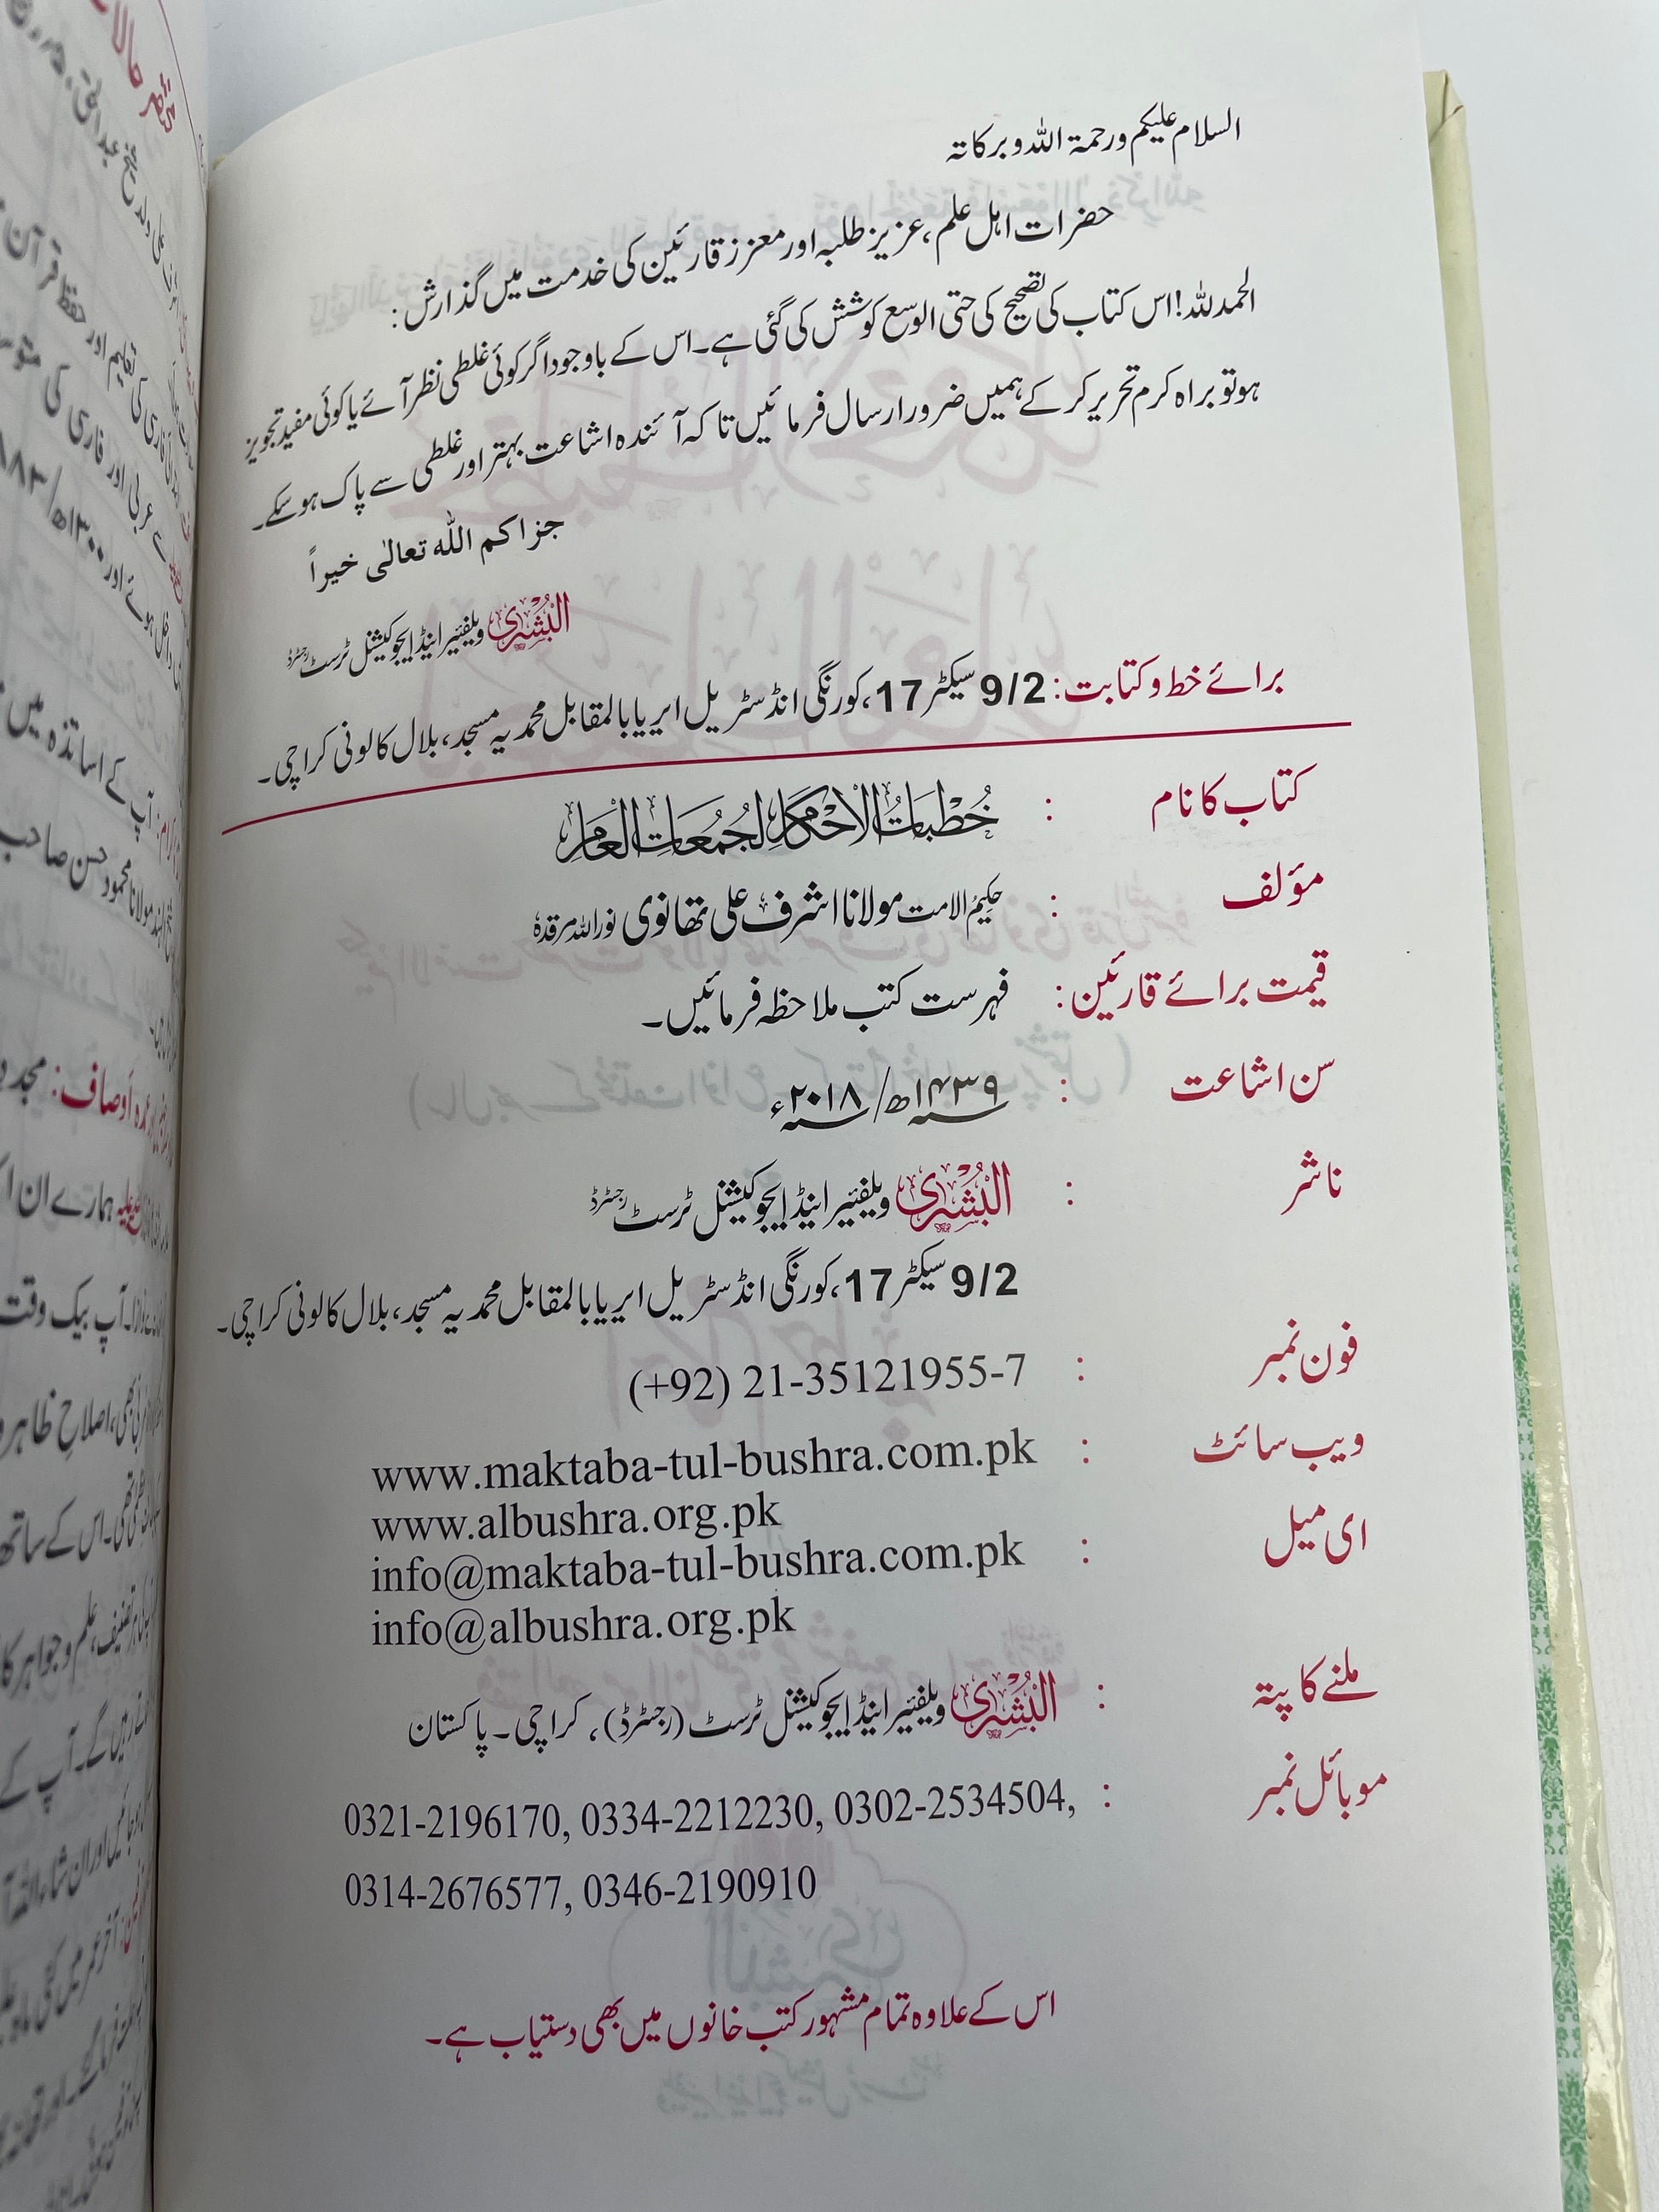 السلام علیکم ورحمۃ اللہ وبرکاتہ
حضرات اہل علم، عزیز طلبہ اور معزز قارئین کی خدمت میں گذارش:
الحمدللہ! اس کتاب کی تصحیح کی حتی الوسع کوشش کی گئی ہے۔ اس کے باوجود اگر کوئی غلطی نظر آئے یا کوئی مفید تجویز
ہو تو براہ کرم تحریر کر کے ہمیں ضرور ارسال فرمائیں تا کہ آئندہ اشاعت بہتر اور غلطی سے پاک ہو سکے۔
جزاکم اللہ تعالٰی خیراً
البُشریٰ ویلفیئر اینڈ ایجوکیشنل ٹرسٹ رجسٹرڈ
برائے خط و کتابت: 9/2 سیکٹر 17، کورنگی انڈسٹریل ایریا بالمقابل محمدیہ مسجد، بلال کالونی کراچی۔
کتاب کا نام : خُطْبَاتُ الْاَحْكَامِ لِجُمُعَاتِ الْعَامِ
مؤلف : حکیم الامت مولانا اشرف علی تھانوی نور اللہ مرقدہٗ
قیمت برائے قارئین: فہرست کتب ملاحظہ فرمائیں۔
سن اشاعت : ۱۴۳۹ھ/ ۲۰۱۸ء
ناشر : البُشریٰ ویلفیئر اینڈ ایجوکیشنل ٹرسٹ رجسٹرڈ
9/2 سیکٹر 17، کورنگی انڈسٹریل ایریا بالمقابل محمدیہ مسجد، بلال کالونی کراچی۔
فون نمبر : (+92) 21-35121955-7
ویب سائٹ : www.maktaba-tul-bushra.com.pk
www.albushra.org.pk
ای میل : info@maktaba-tul-bushra.com.pk
info@albushra.org.pk
ملنے کا پتہ : البُشریٰ ویلفیئر اینڈ ایجوکیشنل ٹرسٹ (رجسٹرڈ)، کراچی۔ پاکستان
موبائل نمبر : 0321-2196170, 0334-2212230, 0302-2534504,
0314-2676577, 0346-2190910
اس کے علاوہ تمام مشہور کتب خانوں میں بھی دستیاب ہے۔